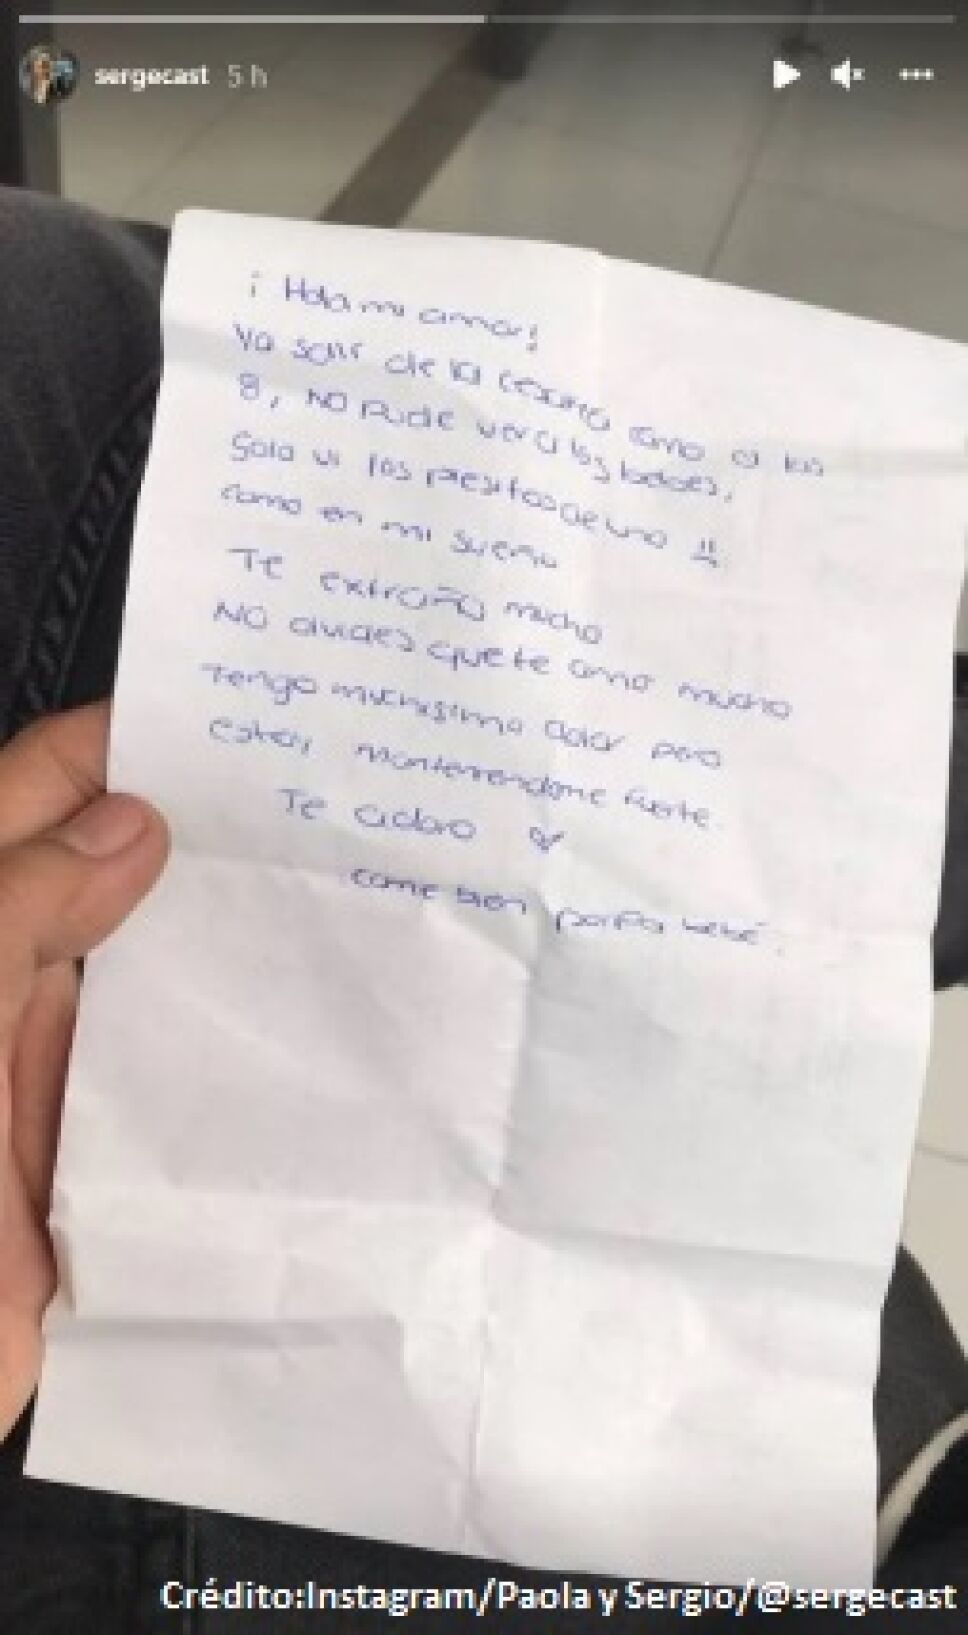 sergecast 5 h
¡Hola mi amor!
Ya salí de la cesarea como a las
8, NO pude ver a los bebes,
Solo vi los piesitos de uno
como en mi sueño
Te extraño mucho
NO olvides que te amo mucho
Tengo muchisimo dolor pero
estoy manteniendome fuerte.
Te adoro
come bien porfa bebé.
Crédito:Instagram/Paola y Sergio/@sergecast